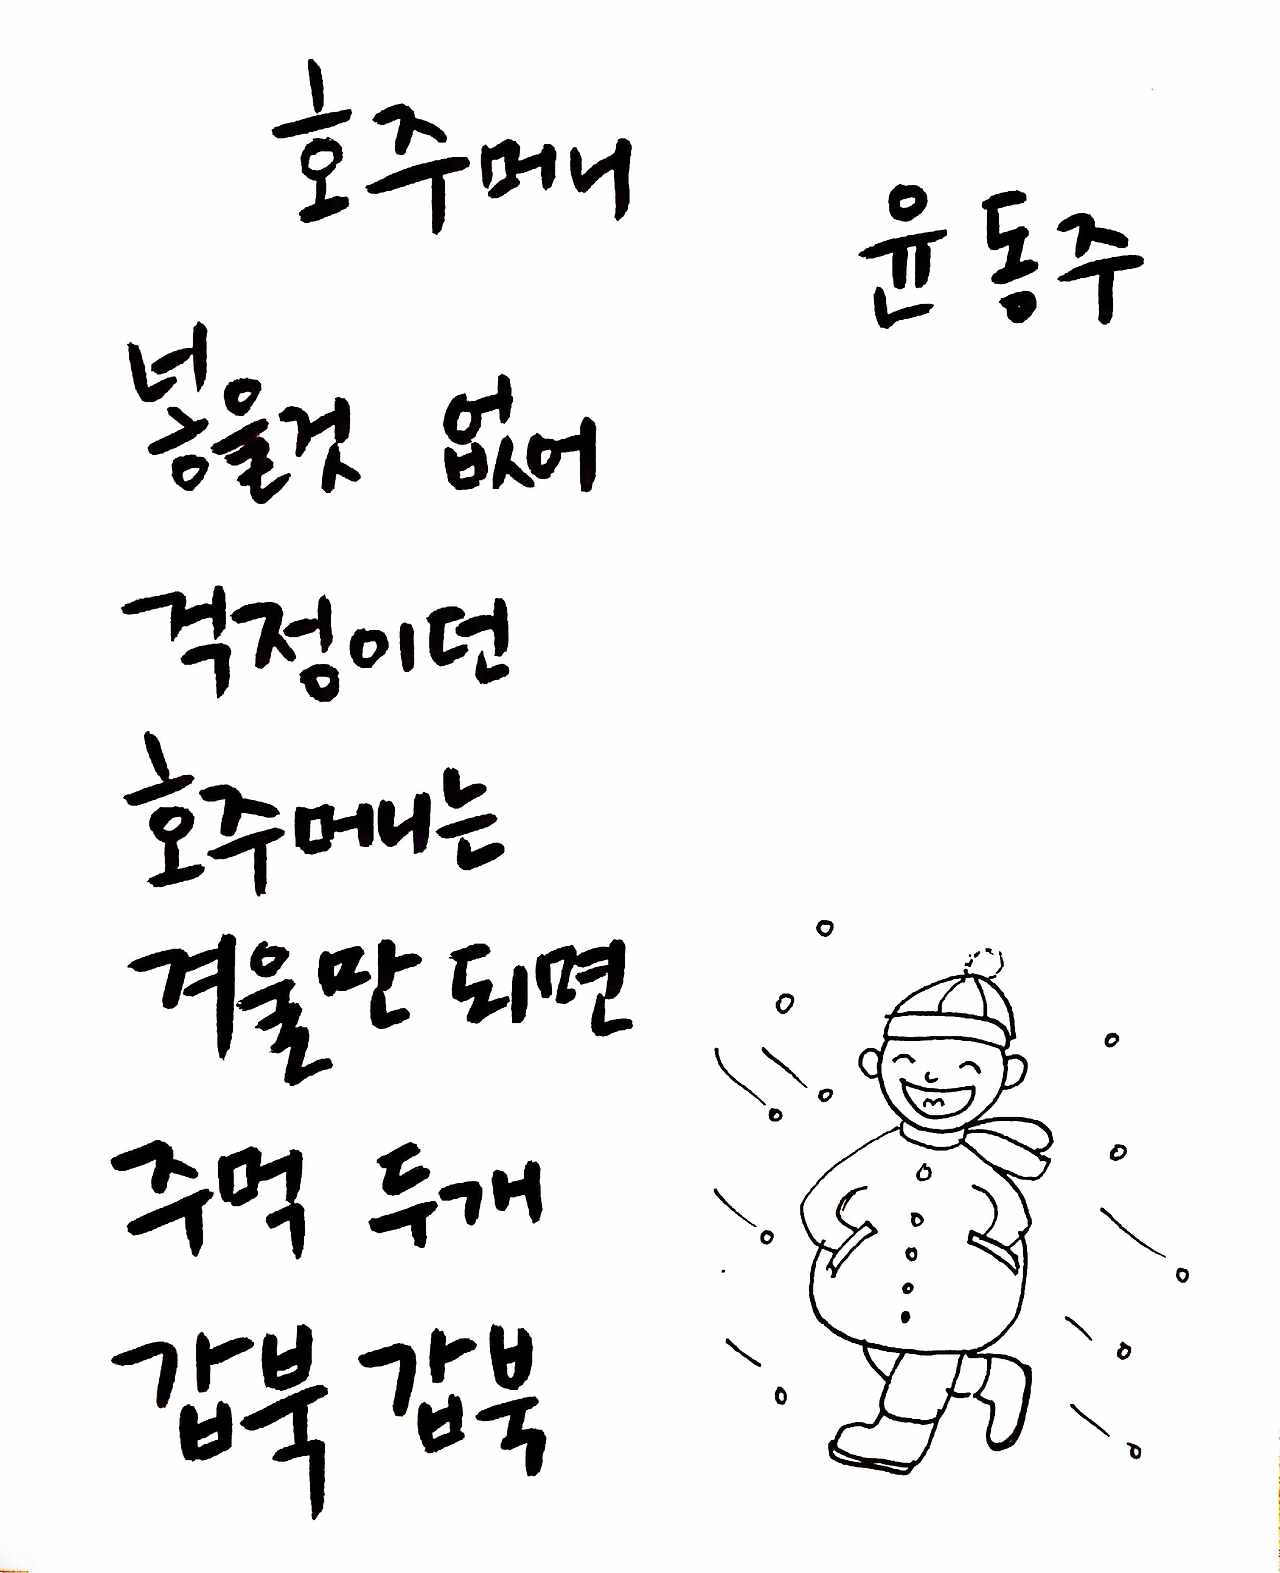 호주머니
윤동주
넣을것 없어
걱정이던
호주머니는
겨울만 되면
주먹 두개
갑북 갑북